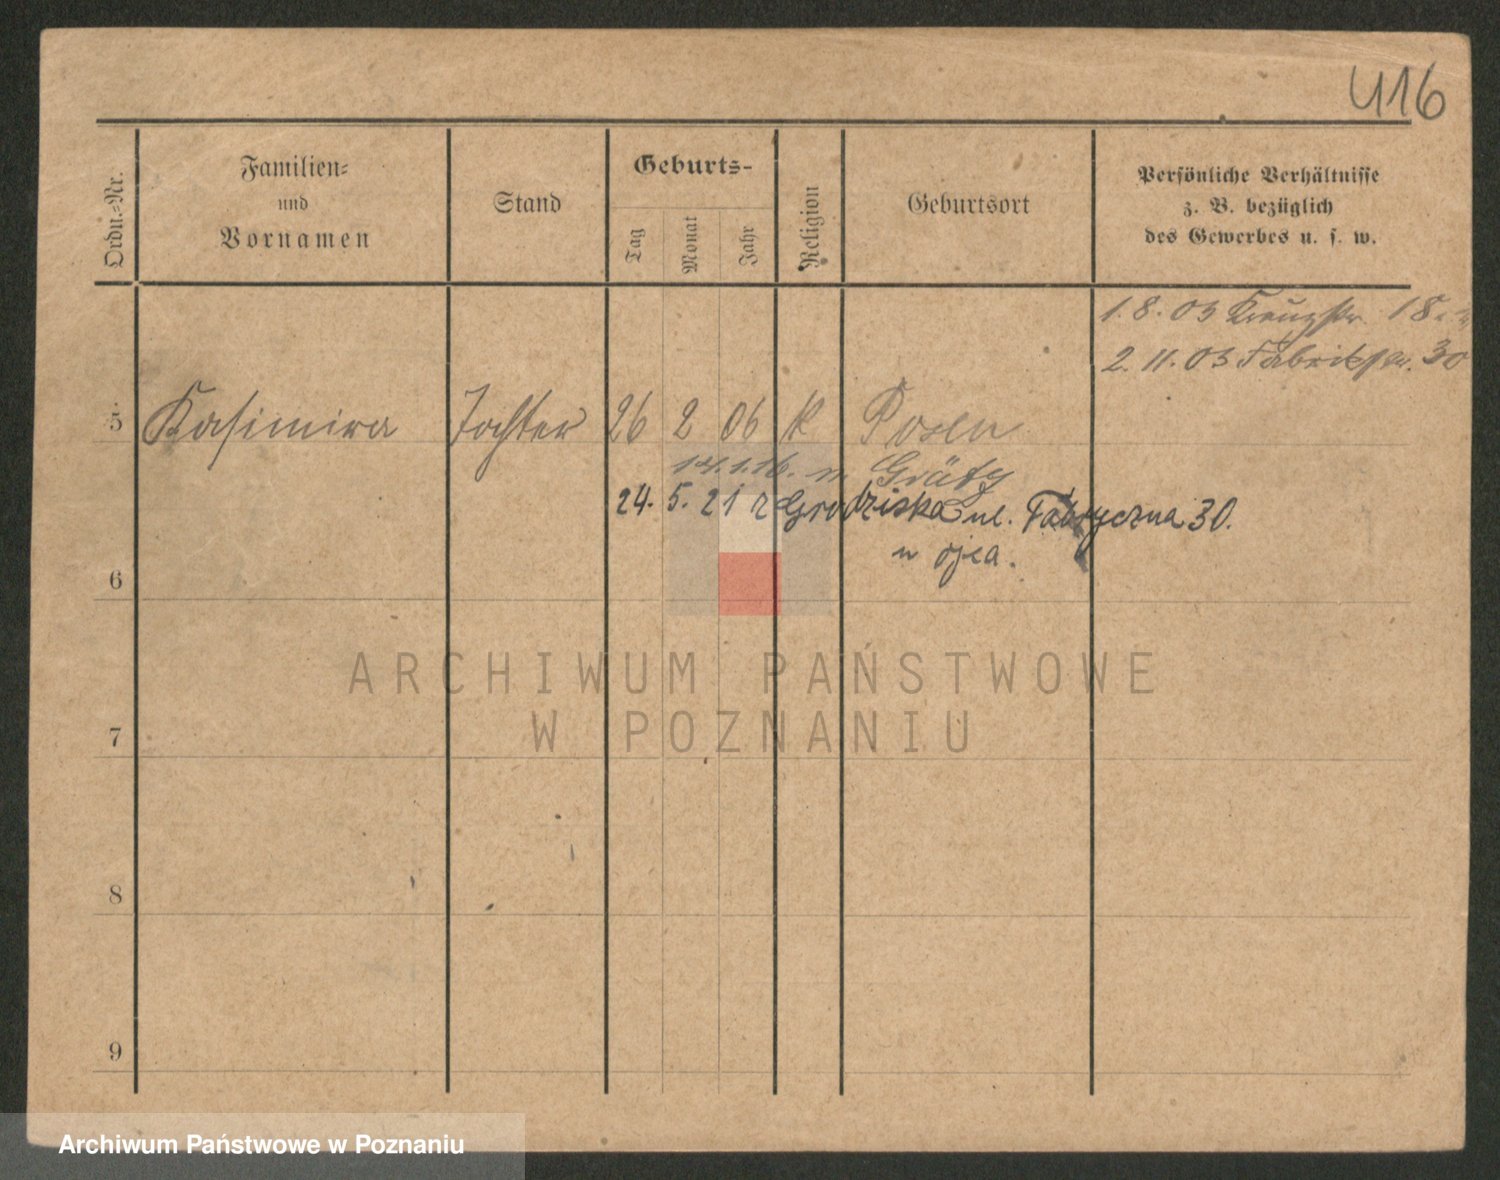 416
Ordn.-Nr.
Familien-
und
Vornamen
Stand
Geburts-
Tag
Monat
Jahr
Religion
Geburtsort
Persönliche Verhältnisse
z. B. bezüglich
des Gewerbes u. s. w.
1. 8. 03 Kreuzstr. 18
2. 11. 03 Fabrikstr. 30
5 Kasimira Tochter 26 2 06 k Posen
14.1.16. n. Grätz
24. 5. 21 z Grodziska ul. Fabryczna 30.
u ojca.
6
7
8
9
ARCHIWUM PAŃSTWOWE
W POZNANIU
Archiwum Państwowe w Poznaniu